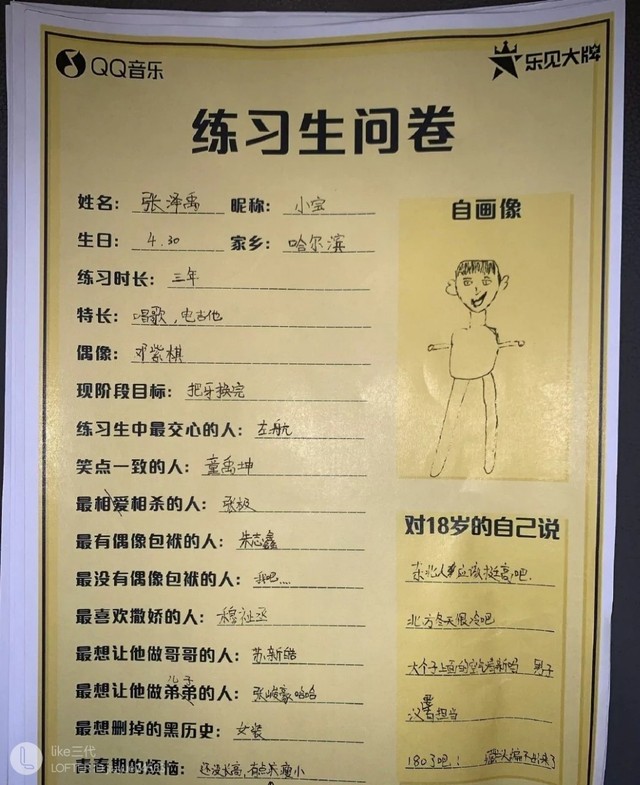 QQ音乐
乐见大牌
练习生问卷
姓名：张泽禹 昵称：小宝
生日：4.30 家乡：哈尔滨
练习时长：三年
特长：唱歌，电吉他
偶像：邓紫棋
现阶段目标：把牙换完
练习生中最交心的人：左航
笑点一致的人：童禹坤
最相爱相杀的人：张极
最有偶像包袱的人：朱志鑫
最没有偶像包袱的人：我吧....
最喜欢撒娇的人：穆祉丞
最想让他做哥哥的人：苏新皓
儿子
最想让他做弟弟的人：张峻豪哈哈
最想删掉的黑历史：女装
青春期的烦恼：还没长高，有点瘦小
自画像
对18岁的自己说
东北人应该挺高吧.
北方冬天很冷吧
大个子上面的空气清新吗 男子
汉 担当
180了吧！
like三代
LOFTER